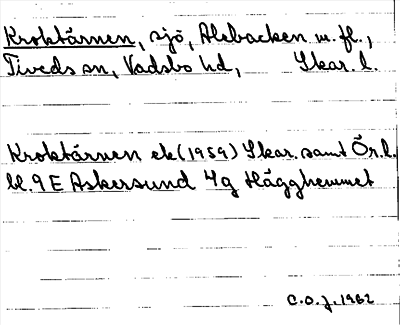 Kroktärnen, sjö, Alsbacken m. fl.,
Tiveds sn, Vadsbo hd, Skar. l.
Kroktärnen ek (1959) Skar. samt Ör. l.
bl. 9 E Askersund 4g Hägghemmet
C.O.J. 1962